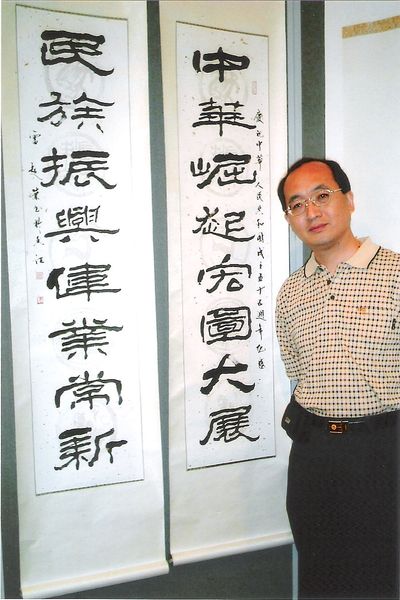 中華崛起宏圖大展
慶祝中華人民共和國成立五十五週年紀念
民族振興偉業常新